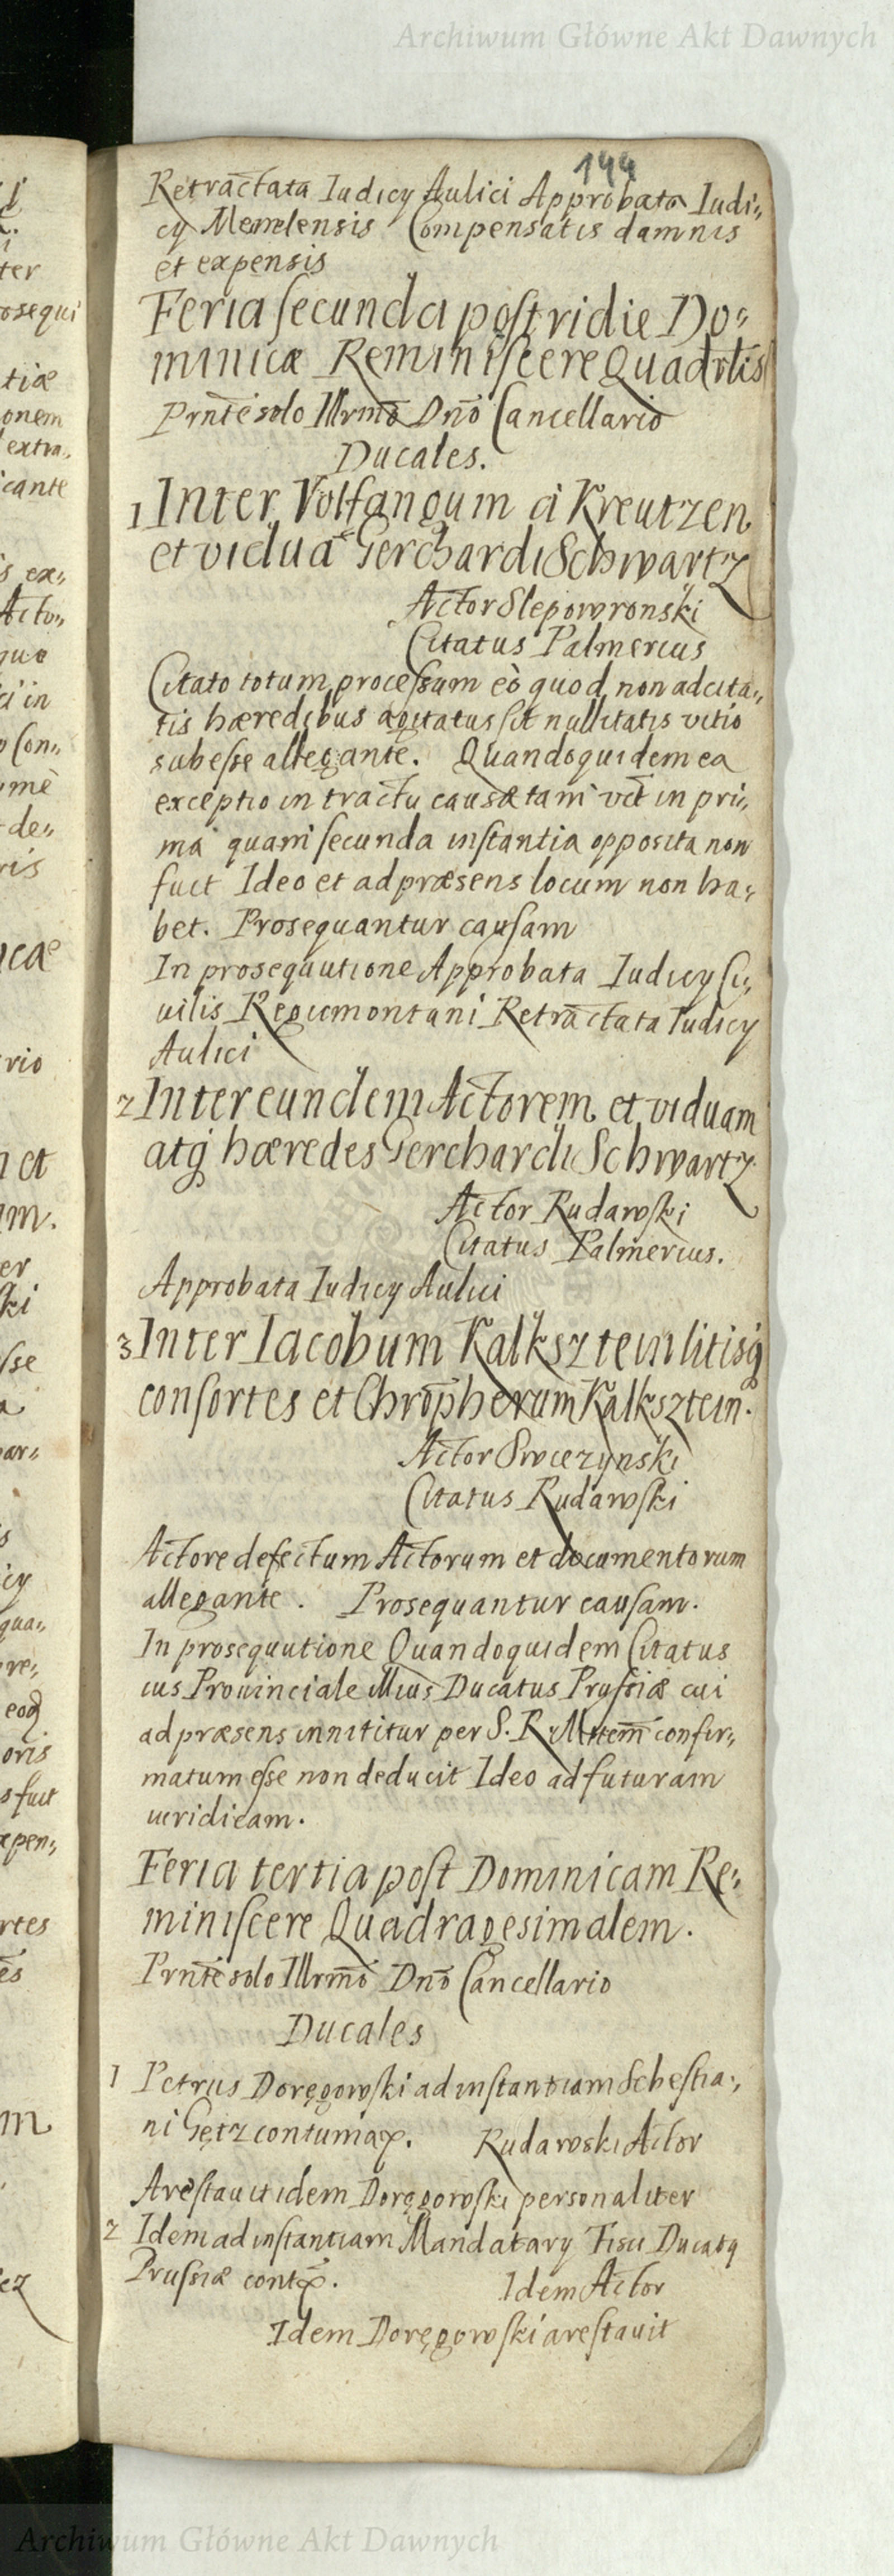 Archiwum Główne Akt Dawnych
144
Retractata Iudicy Aulici Approbata Iudi„
cy Memelensis Compensatis damnis
et expensis
Feria secunda postridie Do„
minicæ Reminiscere Quadrlis
Prnte solo Illrmo Dno Cancellario
Ducales.
1 Inter Volfangum à Kreutzen
et viduã Gerchardi Schwartz
Actor Slepowronski
Citatus Palmerius
Citato totum processum eò quod non adcita„
tis hæredibus agitatus sit nullitatis vitio
subesse allegante. Quandoquidem ea
exceptio in tractu causæ tam vel in pri„
ma quam secunda instantia opposita non
fuit Ideo et ad præsens locum non ha„
bet. Prosequantur causam
In prosequutione Approbata Iudicy Ci„
uilis Regiomontani Retractata Iudicy
Aulici
2 Inter eundem Actorem et viduam
atq hæredes Gerchardi Schwartz
Actor Rudawski
Citatus Palmerius.
Approbata Iudicy Aulici
3 Inter Iacobum Kalksztein litisq
consortes et Chropherum Kalksztein.
Actor Swiezynski
Citatus Rudawski
Actore defectum Actorum et documentorum
allegante. Prosequantur causam.
In prosequutione Quandoquidem Citatus
ius Prouinciale illius Ducatus Prussiæ cui
ad præsens innititur per S. R. Mttem confir„
matum esse non deducit Ideo ad futuram
iuridicam.
Feria tertia post Dominicam Re„
miniscere Quadragesimalem.
Prnte solo Illrmo Dno Cancellario
Ducales
1 Petrus Doręgowski ad instantiam Sebestia„
ni Gętz contumax. Rudawski Actor
Arestauit idem Doręgowski personaliter
2 Idem ad instantiam Mandatary Fisci Ducatq
Prussiæ contx. Idem Actor
Idem Doręgowski arestauit
Archiwum Główne Akt Dawnych